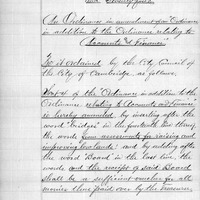 and Twenty five
An Ordinance in amendment of an Ordinance
in addition to the Ordinance relating to
"Accounts & Finance"
Be it ordained by the City Council of
the City of Cambridge, as follows,
Sect 4 of the Ordinance in addition to the
Ordinance relating to Accounts and Finance
is hereby amended by inserting after the
word "bridges" in the fourteenth line thereof
the words from assessments for raising and
improving lowlands: and by adding after
the word Board in the last line, the
words and the receipt of said Board
shall be a sufficient voucher for all
monies thus paid over by the Treasurer